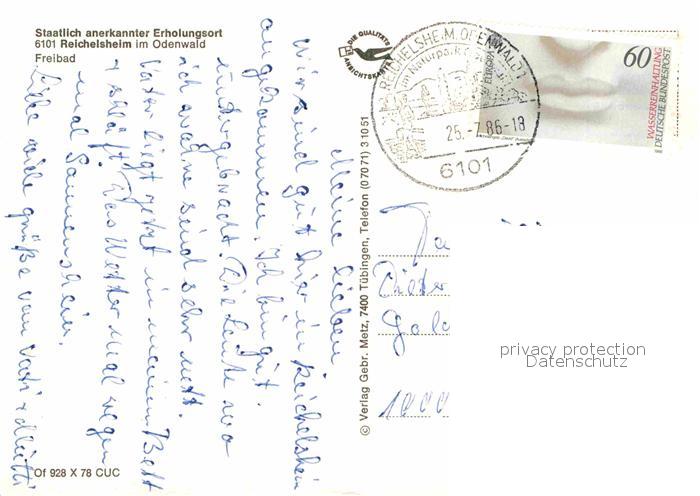 Staatlich anerkannter Erholungsort
6101 Reichelsheim im Odenwald
Freibad
DIE QUALITÄTS
ANSICHTSKARTE
REICHELSHEIM, ODENWALD 1
im Naturpark
25.-7.86-18
6101
60
WASSERREINHALTUNG
DEUTSCHE BUNDESPOST
EUROPA
Meine Lieben
Wir sind gut hier in Reichelsheim
angekommen. Ich bin gut
untergebracht. Die Leute wo
ich wohne sind sehr nett.
Vater liegt jetzt in meinem Bett
+ schläft. Das Wetter mal regen
mal Sonnenschein.
Liebe viele grüße von Vati + Mutti
© Verlag Gebr. Metz, 7400 Tübingen, Telefon (0 70 71) 3 10 51
Dieter
1000
privacy protection
Datenschutz
Of 928 X 78 CUC